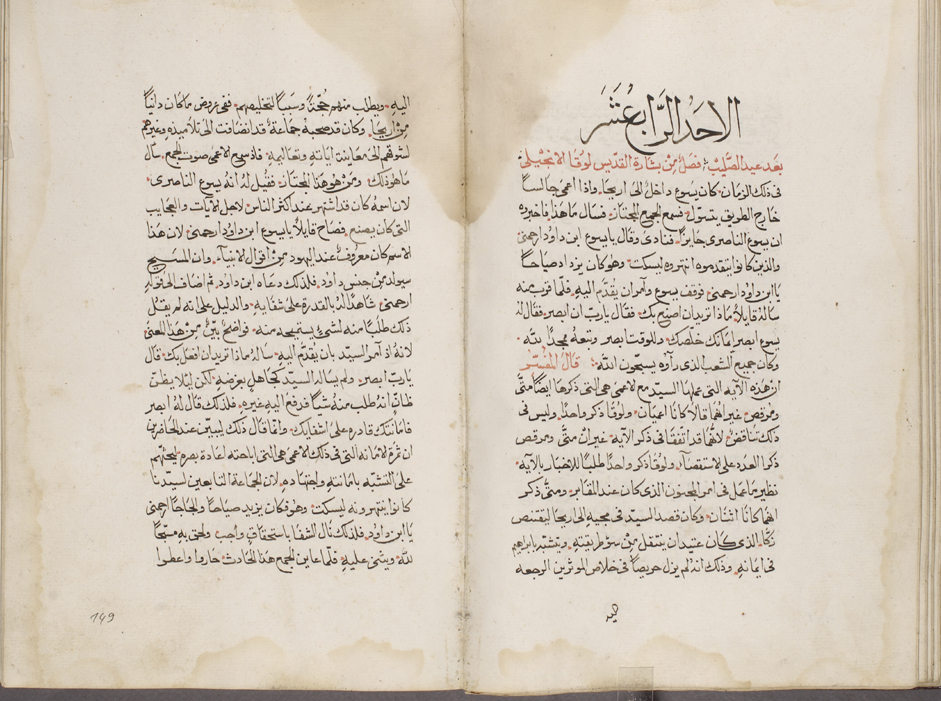 الاحد الرابع عشر
بعد عيد الصليب فصل من بشارة القديس لوقا الانجيلي
في ذلك الزمان كان يسوع داخل الى اريحا واذا اعمى جالسا
خارج الطريق يتسول فسمع الجمع المجتاز فسال ما هذا فاخبروه
ان يسوع الناصري جايزا فنادى وقال يا يسوع ابن داود ارحمني
والذين كانوا يتقدموه انتهروه ليسكت وهو كان يزداد صياحا
يا ابن داود ارحمني فوقف يسوع وامر ان يقدم اليه فلما قرب منه
ساله قايلا ماذا تريد ان اصنع بك فقال يا رب ان ابصر فقال له
يسوع ابصر امانتك خلصتك وللوقت ابصر وتبعه ممجدا لله
وكان جميع الشعب الذي راوه يسبحون الله قال المفسر
ان هذه الآية التي عملها السيد مع الاعمى هي التي ذكرها ايضا متى
ومرقص غير انهما قالا كانا اعميان ولوقا ذكر واحدا وليس في
ذلك تناقض لانهما قد اتفقا في ذكر الآية غير ان متى ومرقص
ذكرا العدد على الاستقصاء ولوقا ذكر واحدا طلبا للاخبار بالآية
نظير ما عمل في امر المجنون الذي كان عند المقابر ومتى ذكر
انهما كانا اثنان وكان قصد السيد في مجيه الى اريحا ليقتنص
زكا الذي كان عتيد ان ينتقل من سو طريقته ويتشبه بابراهيم
في ايمانه وذلك انه لم يزل حريصا في خلاص الموثرين الرجعه
اليه ويطلب منهم حجة وسببا لتخليصهم ففي عروض ما كان دانيا
من اريحا وكان قد صحبه جماعة قد انضافت الى تلاميذه وغيرهم
لشوقهم الى معاينة اياته وتعاليمه فاذ سمع الاعمى صوت الجمع سال
ما هو ذلك ومن هو هذا المجتاز فقيل له انه يسوع الناصري
لان اسمه كان قد اشتهر عند اكثر الناس لاجل الايات والعجايب
التي كان يصنع فصاح قايلا يا يسوع ابن داود ارحمني لان هذا
الاسم كان معروف عند اليهود من اقوال الانبياء وان المسيح
سيولد من جنس داود فلذلك دعاه ابن داود ثم اضاف الى قوله
ارحمني شاهدا له بالقدرة على شفايه والدليل على انه لم يقل
ذلك طلبا منه لشي يستمنحه منه فواضح بين من هذا المعنى
لانه اذ امر السيد بان يقدم اليه ساله ماذا تريد ان افعل بك قال
يا رب ابصر ولم يساله السيد كجاهل بغرضه لكن ليلا يظن
ظان انه طلب منه شيا فدفع اليه غيره فلذلك قال له ابصر
فامانتك قادره على اشفايك وانما قال ذلك ليبين عند الحاضرين
ان ثمرة الامانه التي في ذلك الاعمى هي التي اباحته اعادة بصره ليحثهم
على التشبه بامانته واجتهاده لان الجماعة التابعين لسيدنا
كانوا ينتهرونه ليسكت وهو كان يزيد صياحا والجاجا ارحمني
يا ابن داود فلذلك نال الشفا باستحقاق واجب ولحق به مسبحا
لله ويثني عليه فلما عاين الجمع هذا الحادث حاروا واعطوا
149